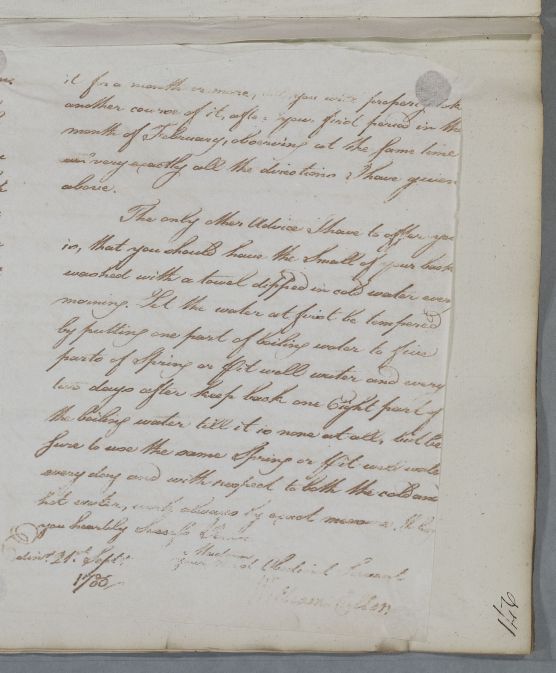 it for a month or more, you will properly
another course of it, after your first period in the
month of February, observing at the same time
very exactly all the directions I have given
above.
The only other Advice I have to offer you
is, that you should have the Small of your back
washed with a towel dipped in cold water every
morning. Let the water at first be tempered
by putting one part of boiling water to five
parts of Spring or pit well water and every
two days after keep back one Eight part of
the boiling water till it is none at all, but be
Sure to use the same Spring or pit well water
every day and with respect to both the cold and
hot water, always by exact measure. I
you heartily Success
Madam
your most Obedient Servant
William Cullen
Edinr. 21st. Septr.
1786
146